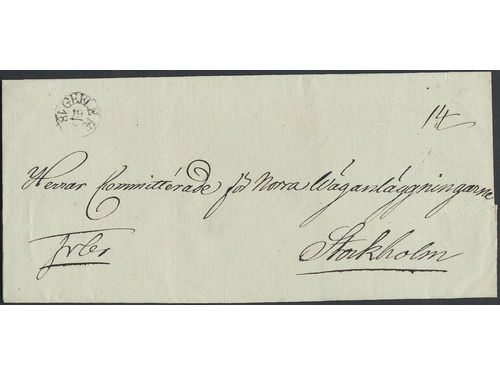 GEFLE
14
Herrar Committérade för Norra Väganläggningarne
Stockholm